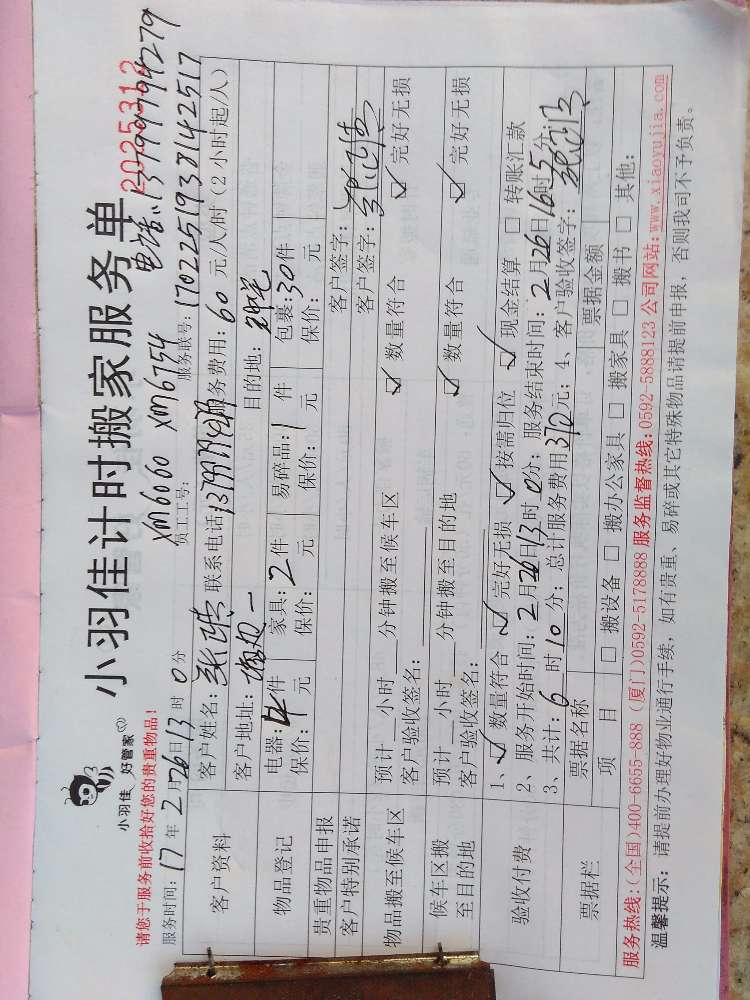 小羽佳 好管家
小羽佳计时搬家服务单
2025312
电话:13799794279
请您于服务前收拾好您的贵重物品!
xm6060 xm6754
服务时间: 17 年 2 月 26 日 13 时 0 分 员工工号: 服务联号: 170225193814 2517
客户资料 客户姓名: 联系电话 服务费用: 60 元/人/时 (2小时起/人)
客户地址: 目的地:
物品登记 电器: 4 件 家具: 2 件 易碎品: 1 件 包裹: 30 件
保价: 元 保价: 元 保价: 元 保价: 元
贵重物品申报 客户签字:
客户特别承诺 客户签字:
物品搬至候车区 预计 小时 分钟搬至候车区 ☑ 数量符合 ☑ 完好无损
客户验收签名:
候车区搬至目的地 预计 小时 分钟搬至目的地 ☑ 数量符合 ☑ 完好无损
客户验收签名:
验收付费 1、☑ 数量符合 ☑ 完好无损 ☑ 按需归位 ☑ 现金结算 □ 转账汇款
2、服务开始时间: 2 月 26 日 13 时 0 分; 服务结束时间: 2 月 26 日 16 时 5 分
3、共计: 6 时 10 分; 总计服务费用 370 元; 4、客户验收签字:
票据栏 票据名称 票据金额
项 目 □ 搬设备 □ 搬办公家具 □ 搬家具 □ 搬书 □ 其他:
服务热线:(全国)400-6655-888 (厦门)0592-5178888 服务监督热线:0592-5888123 公司网站:www.xiaoyujia.com
温馨提示: 请提前办理好物业通行手续, 如有贵重、易碎或其它特殊物品请提前申报, 否则我司不予负责。